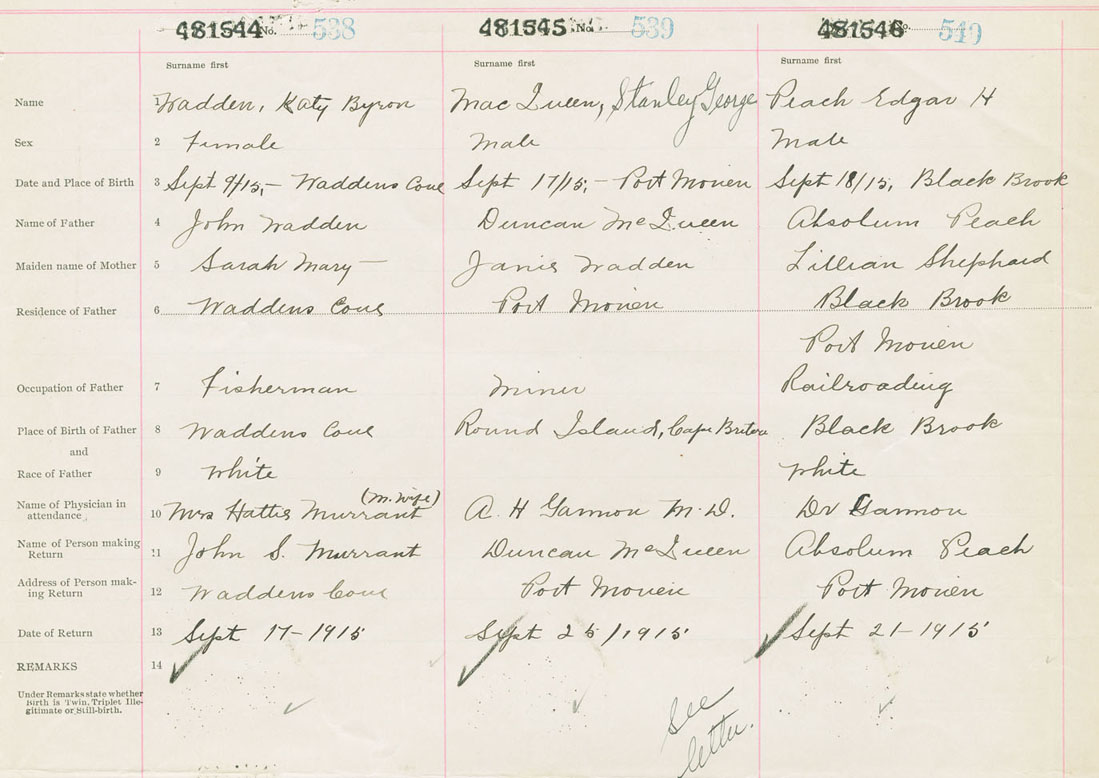 481544 No. 538 481545 No. 539 481546 No. 540
Surname first Surname first Surname first
Name 1 Wadden, Katy Byron Mac Queen, Stanley George Peach Edgar H
Sex 2 Female Male Male
Date and Place of Birth 3 Sept 9/15,- Waddens Cove Sept 17/15,- Port Morien Sept 18/15, Black Brook
Name of Father 4 John Wadden Duncan McQueen Absolum Peach
Maiden name of Mother 5 Sarah Mary — Janie Wadden Lillian Shephard
Residence of Father 6 Waddens Cove Port Morien Black Brook
Port Morien
Occupation of Father 7 Fisherman Miner Railroading
Place of Birth of Father 8 Waddens Cove Round Island, Cape Breton Black Brook
and
Race of Father 9 White White
(M. Wife)
Name of Physician in
attendance 10 Mrs Hattie Murrant A. H Gannon M.D. Dr Gannon
Name of Person making
Return 11 John S. Murrant Duncan McQueen Absolum Peach
Address of Person mak-
ing Return 12 Waddens Cove Port Morien Port Morien
Date of Return 13 Sept 17-1915 Sept 25/1915 Sept 21-1915
REMARKS 14
Under Remarks state whether
Birth is Twin, Triplet Ille-
gitimate or Still-birth.
See
letter.